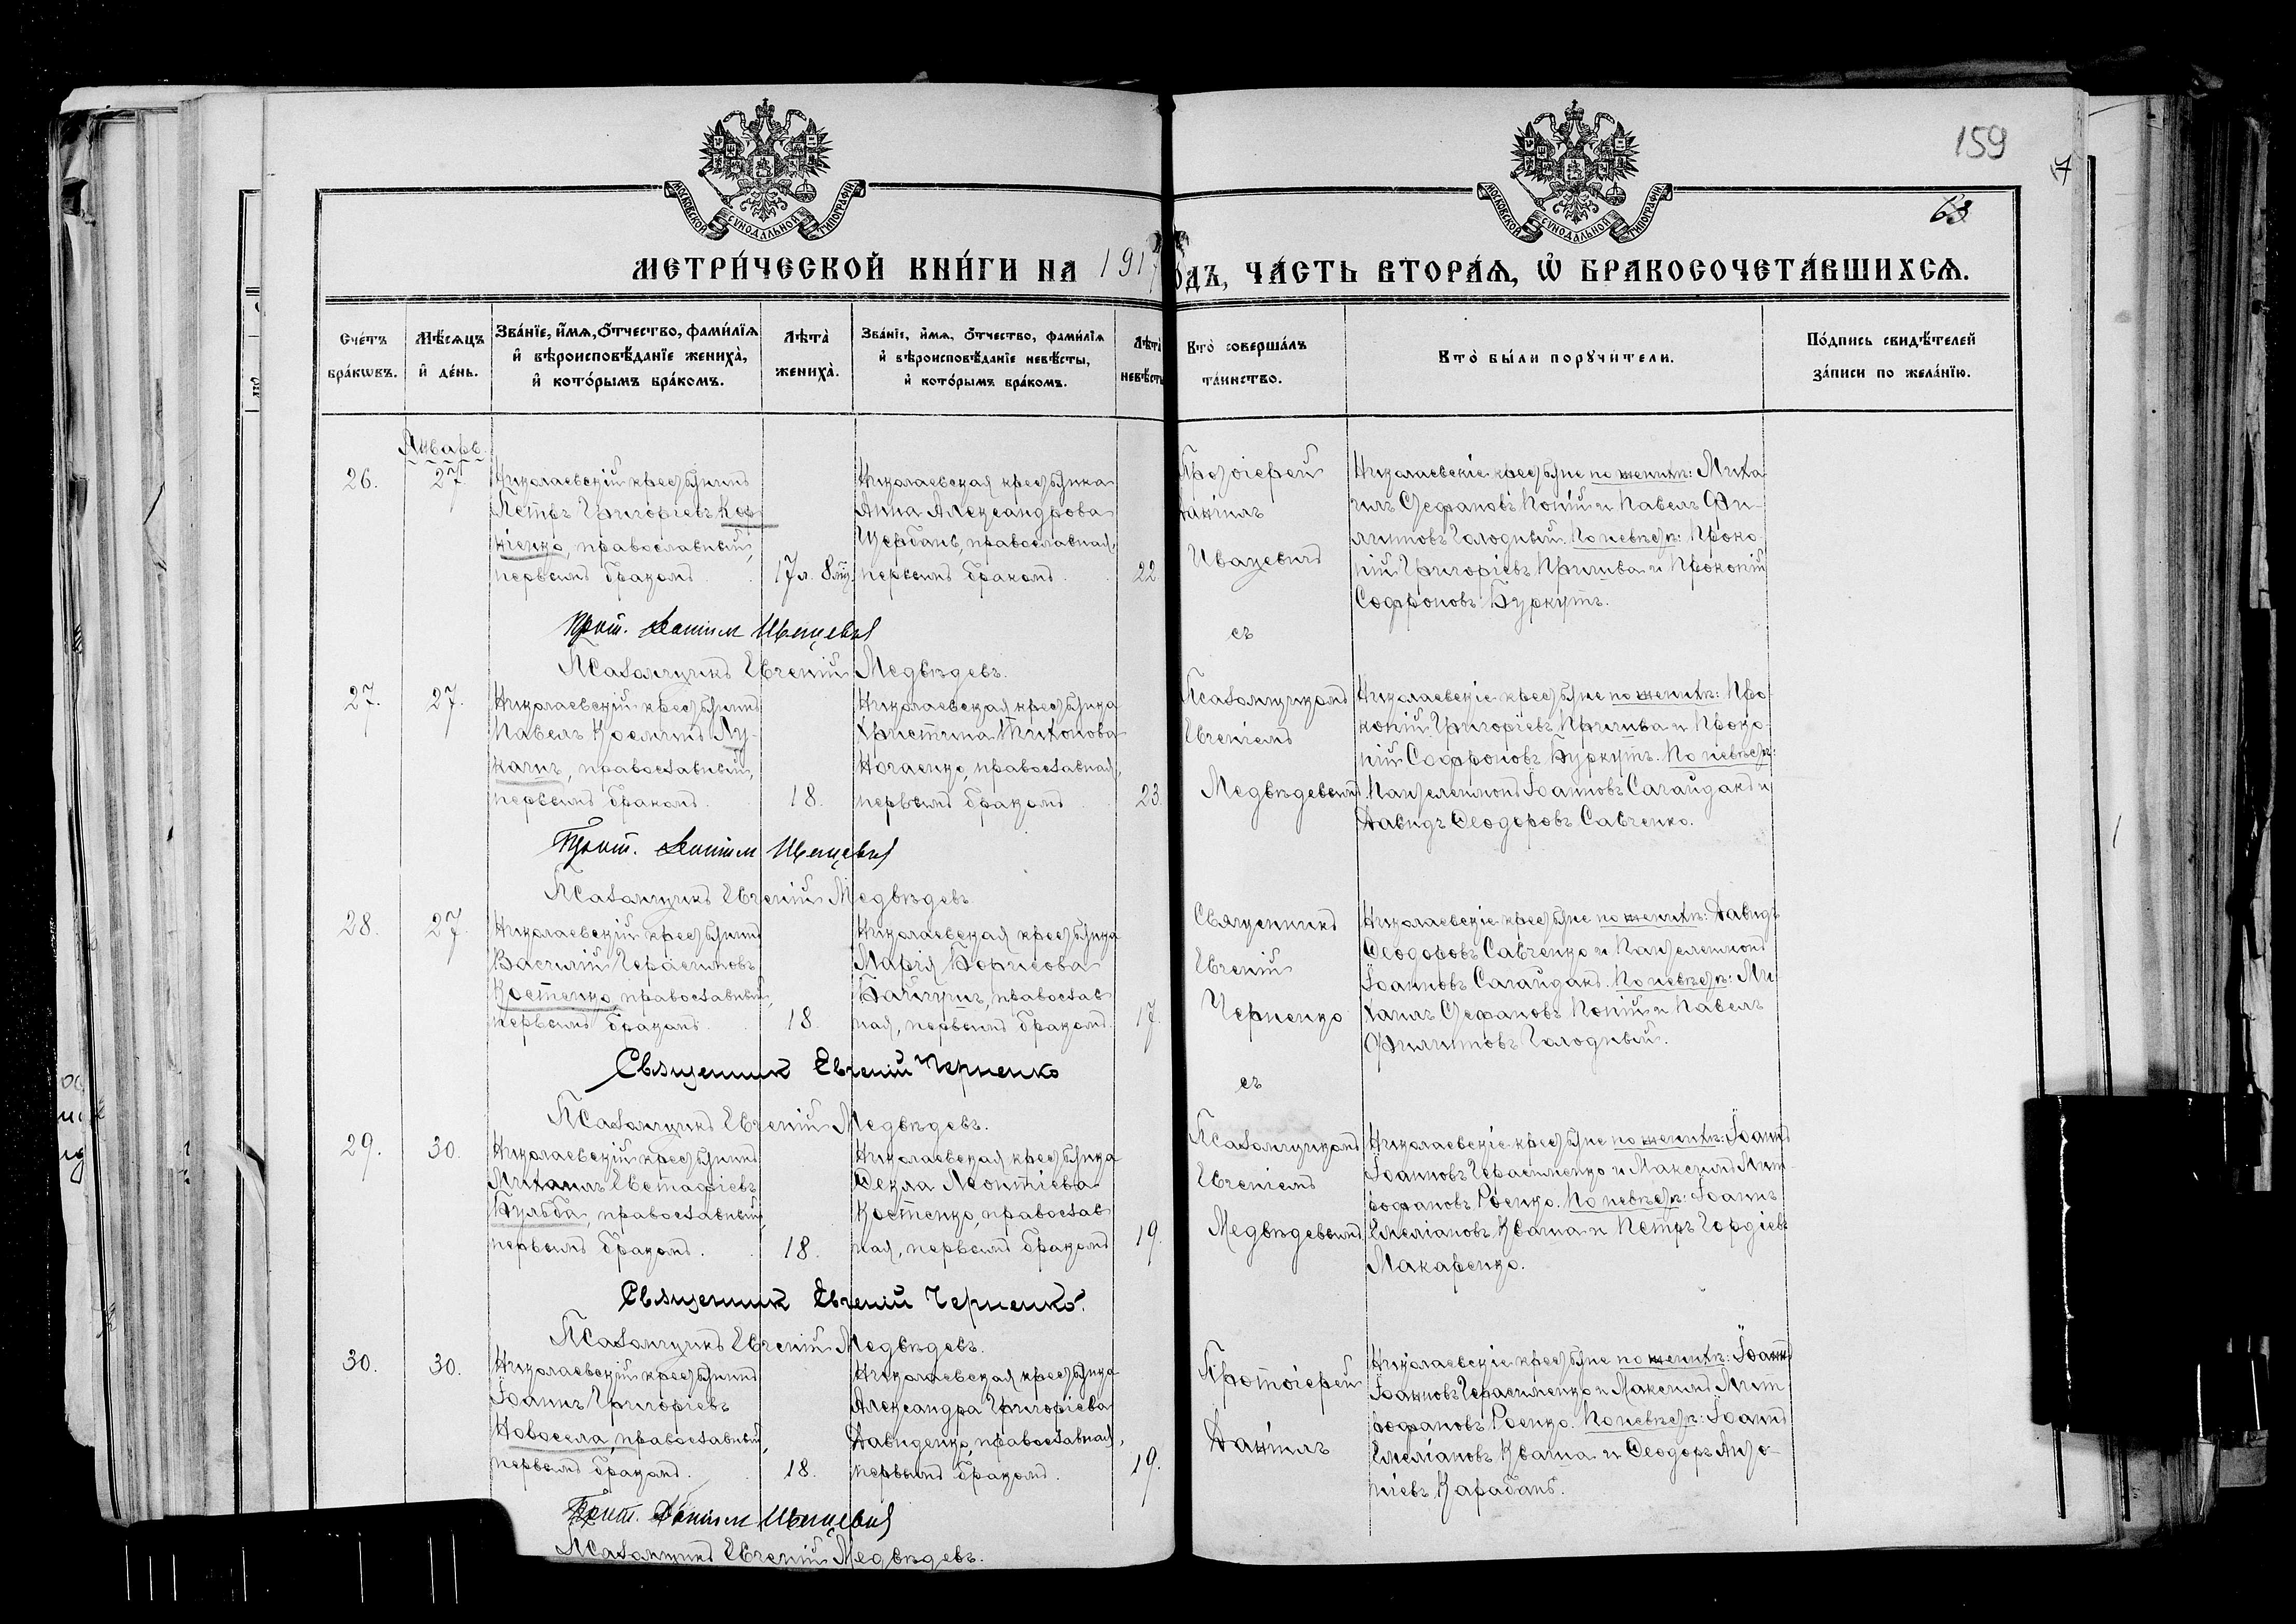 159
63
МОСКОВСКОЙ СѴНОДАЛЬНОЙ ТИПОГРАФІИ
МОСКОВСКОЙ СѴНОДАЛЬНОЙ ТИПОГРАФІИ
МЕТРИ́ЧЕСКОЙ КНИ́ГИ НА 1917
ОДЪ, ЧА́СТЬ ВТОРА́Я, Ѡ҆ БРАКОСОЧЕТА́ВШИХСЯ.
Сче́тъ бра́кѡвъ.
Мѣ́сяцъ и҆ де́нь.
Зва́нїе, и҆́мя, ѻ҆́тчество, фами́лїя и҆ вѣроисповѣ́данїе жениха̀, и҆ кото́рымъ бра́комъ.
Лѣ́та̀ жениха̀.
Зва́нїе, и҆́мя, ѻ҆́тчество, фами́лїя и҆ вѣроисповѣ́данїе невѣ́сты, и҆ кото́рымъ бра́комъ.
Лѣ́та̀ невѣ́сты
Кто̀ соверша́лъ та́инство.
Кто̀ бы́ли порꙋчи́тели.
По́дпись свидѣ́телей за́писи по жела́нїю.
Январь.
26.
27.
Николаевскій крестьянинъ
Петръ Григоріевъ Кор-
ніенко, православный,
первымъ бракомъ.
17 л. 8 м.
Николаевская крестьянка
Анна Александрова
Щербань, православная,
первымъ бракомъ.
22
Протоіерей
Даніилъ
Ивацевичъ
съ
Николаевскіе крестьяне по женихѣ: Миха
илъ Стефановъ Копій и Павелъ Фи-
липповъ Голодный. По невѣстѣ: Проко-
пій Григоріевъ Прилива и Прокопій
Софроновъ Буркутъ.
Прот. Даніилъ Ивацевичъ
Псаломщикъ Евгеній Медвѣдевъ.
27.
27.
Николаевскій крестьянинъ
Павелъ Косминъ Лу-
качъ, православный,
первымъ бракомъ.
18.
Николаевская крестьянка
Христина Тихонова
Ногаенко, православная,
первымъ бракомъ.
23.
Псаломщикомъ
Евгеніемъ
Медвѣдевымъ.
Николаевскіе крестьяне по женихѣ: Про-
копій Григоріевъ Прилива и Проко-
пій Софроновъ Буркутъ. По невѣстѣ:
Пантелеимонъ Іоанновъ Сагайдакъ и
Давидъ Ѳеодоровъ Савченко.
Прот. Даніилъ Ивацевичъ
Псаломщикъ Евгеній Медвѣдевъ.
28.
27.
Николаевскій крестьянинъ
Василій Герасимовъ
Костенко, православный,
первымъ бракомъ.
18.
Николаевская крестьянка
Марія Борисова
православ
ная, первымъ бракомъ.
17.
Священникъ
Евгеній
Черненко
съ
Николаевскіе крестьяне по женихѣ: Давидъ
Ѳеодоровъ Савченко и Пантелеимонъ
Іоанновъ Сагайдакъ. По невѣстѣ: Ми-
хаилъ Стефановъ Копій и Павелъ
Филипповъ Голодный.
Священникъ Евгеній Черненко
Псаломщикъ Евгеній Медвѣдевъ.
29.
30.
Николаевскій крестьянинъ
Михаилъ Евстафіевъ
Бульба, православный,
первымъ бракомъ.
18.
Николаевская крестьянка
Ѳекла Леонтіева
Костенко, православ
ная, первымъ бракомъ
19.
Псаломщикомъ
Евгеніемъ
Медвѣдевымъ.
Николаевскіе крестьяне по женихѣ: Іоаннъ
Іоанновъ Герасименко и Максимъ Мит-
рофановъ Роенко. По невѣстѣ: Іоаннъ
Емеліановъ Кваша и Петръ Гордіевъ
Макаренко.
Священникъ Евгеній Черненко.
Псаломщикъ Евгеній Медвѣдевъ.
30.
30.
Николаевскій крестьянинъ
Іоаннъ Григоріевъ
Новосела, православный,
первымъ бракомъ.
18.
Николаевская крестьянка
Александра Григоріева
Давиденко, православная,
первымъ бракомъ.
19.
Протоіерей
Даніилъ
Николаевскіе крестьяне по женихѣ: Іоаннъ
Іоанновъ Герасименко и Максимъ Мит
рофановъ Роенко. По невѣстѣ: Іоаннъ
Емеліановъ Кваша и Ѳеодоръ Анто-
ніевъ Карабанъ.
Прот. Даніилъ Ивацевичъ
Псаломщикъ Евгеній Медвѣдевъ.